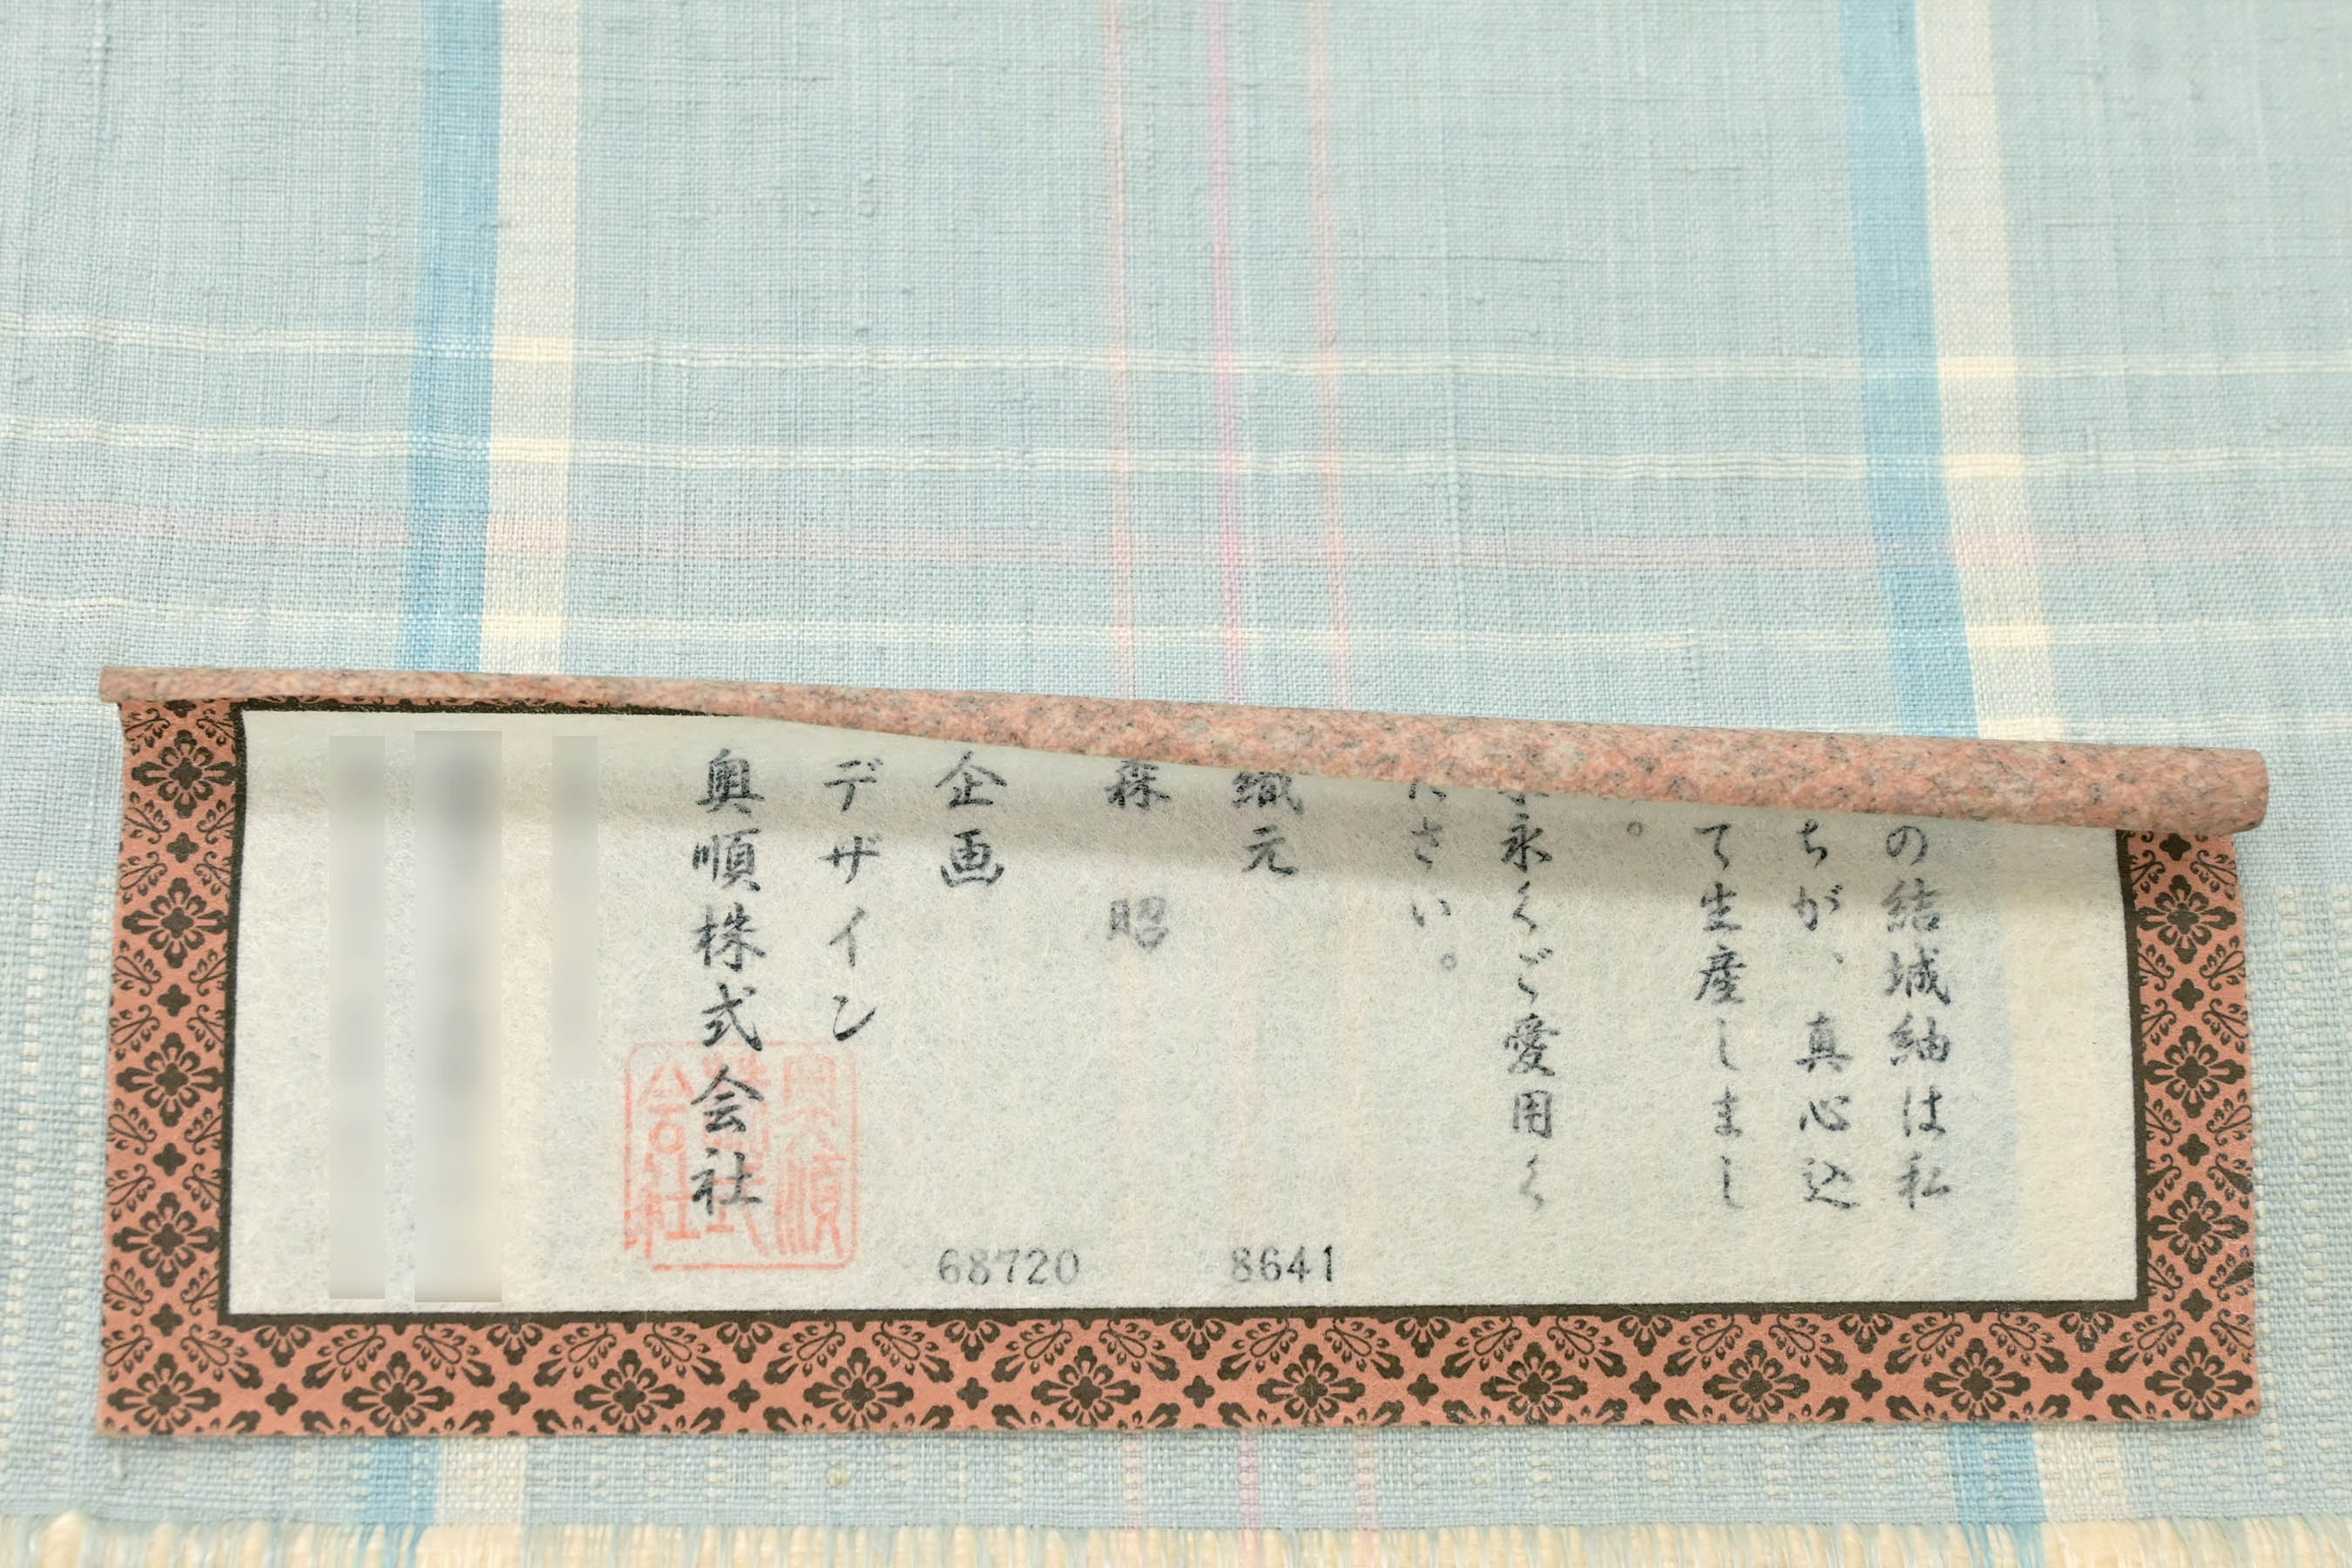 の結城紬は私
ちが、真心込
て生産しまし
。
永くご愛用く
ださい。
織元
森 昭
企画
デザイン
奥順株式会社
奥順株式会社
8641
68720